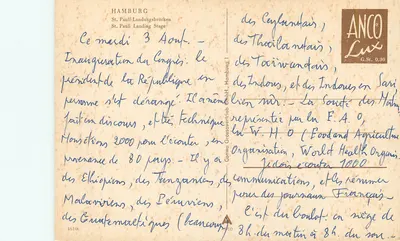 HAMBURG
St. Pauli Landungsbrücken
St. Pauli Landing Stage
Ce mardi 3 Août.-
Inauguration du Congrès. Le
président de la République en
personne s'est dérangé. Il a même
fait un discours, et très technique.
Nous étions 2000 pour l'écouter, en
provenance de 80 pays.- Il y a
des Ethiopiens, des Tanzaniens, des
Malaviriens, des Péruviens,
des Guatemaltèques (beaucoup)
des Ceylanais,
des Thaïlandais,
des Taïwandais,
des Indous, et des Indoues en Sari
bien sûr.- La Société des
représentée par la F.A.O,
la W.H.O (Food and Agriculture
Organisation, World Health Organis.
Je dois écouter 1000
communications, et les résumer
pour des journaux Français.
C'est du boulot. Un siège de
8h. du matin à 8h. du soir.-
ANCO
Lux